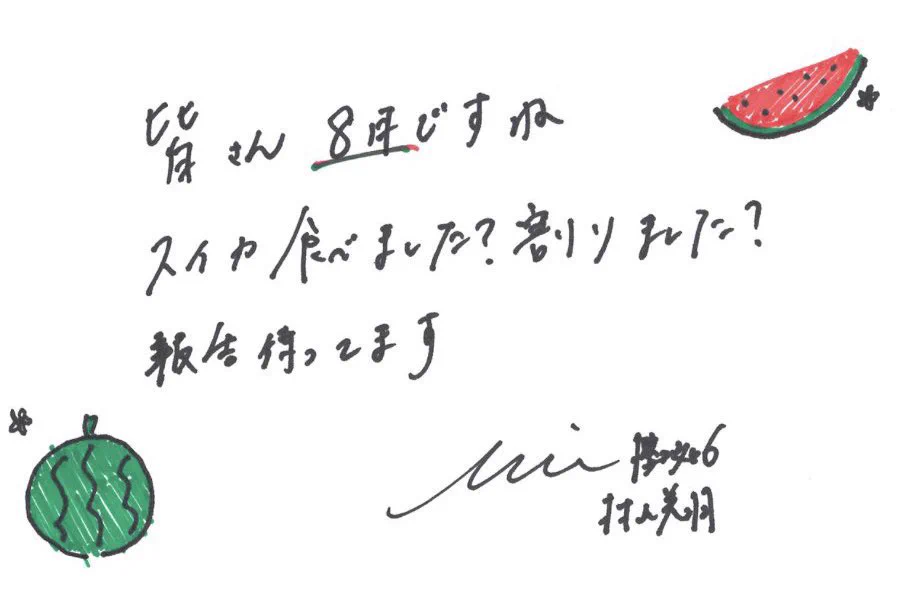 皆さん 8月ですね
スイカ食べました?割りました?
報告待ってます
Miu
村山美羽